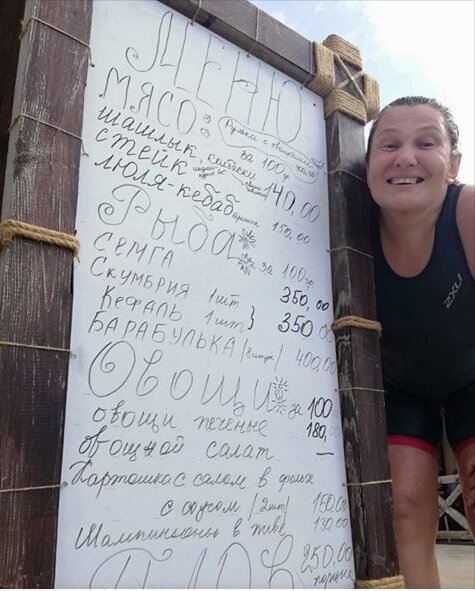 МЕНЮ
МЯСО:
за 100гр
шашлык, колбаски 140,00
стейк
люля-кебаб 150,00
Рыба за 100гр
СЕМГА 350,00
Скумбрия 1шт
Кефаль 1шт } 350 00
БАРАБУЛКА 400,00
Овощи за 100
овощи печенне 180,
овощной салат —
Картошка с салом в фольге
с соусом /2шт/ 150,00
Шампиньоны в 130,00
ПЛОВ 250,00
порция
2XU